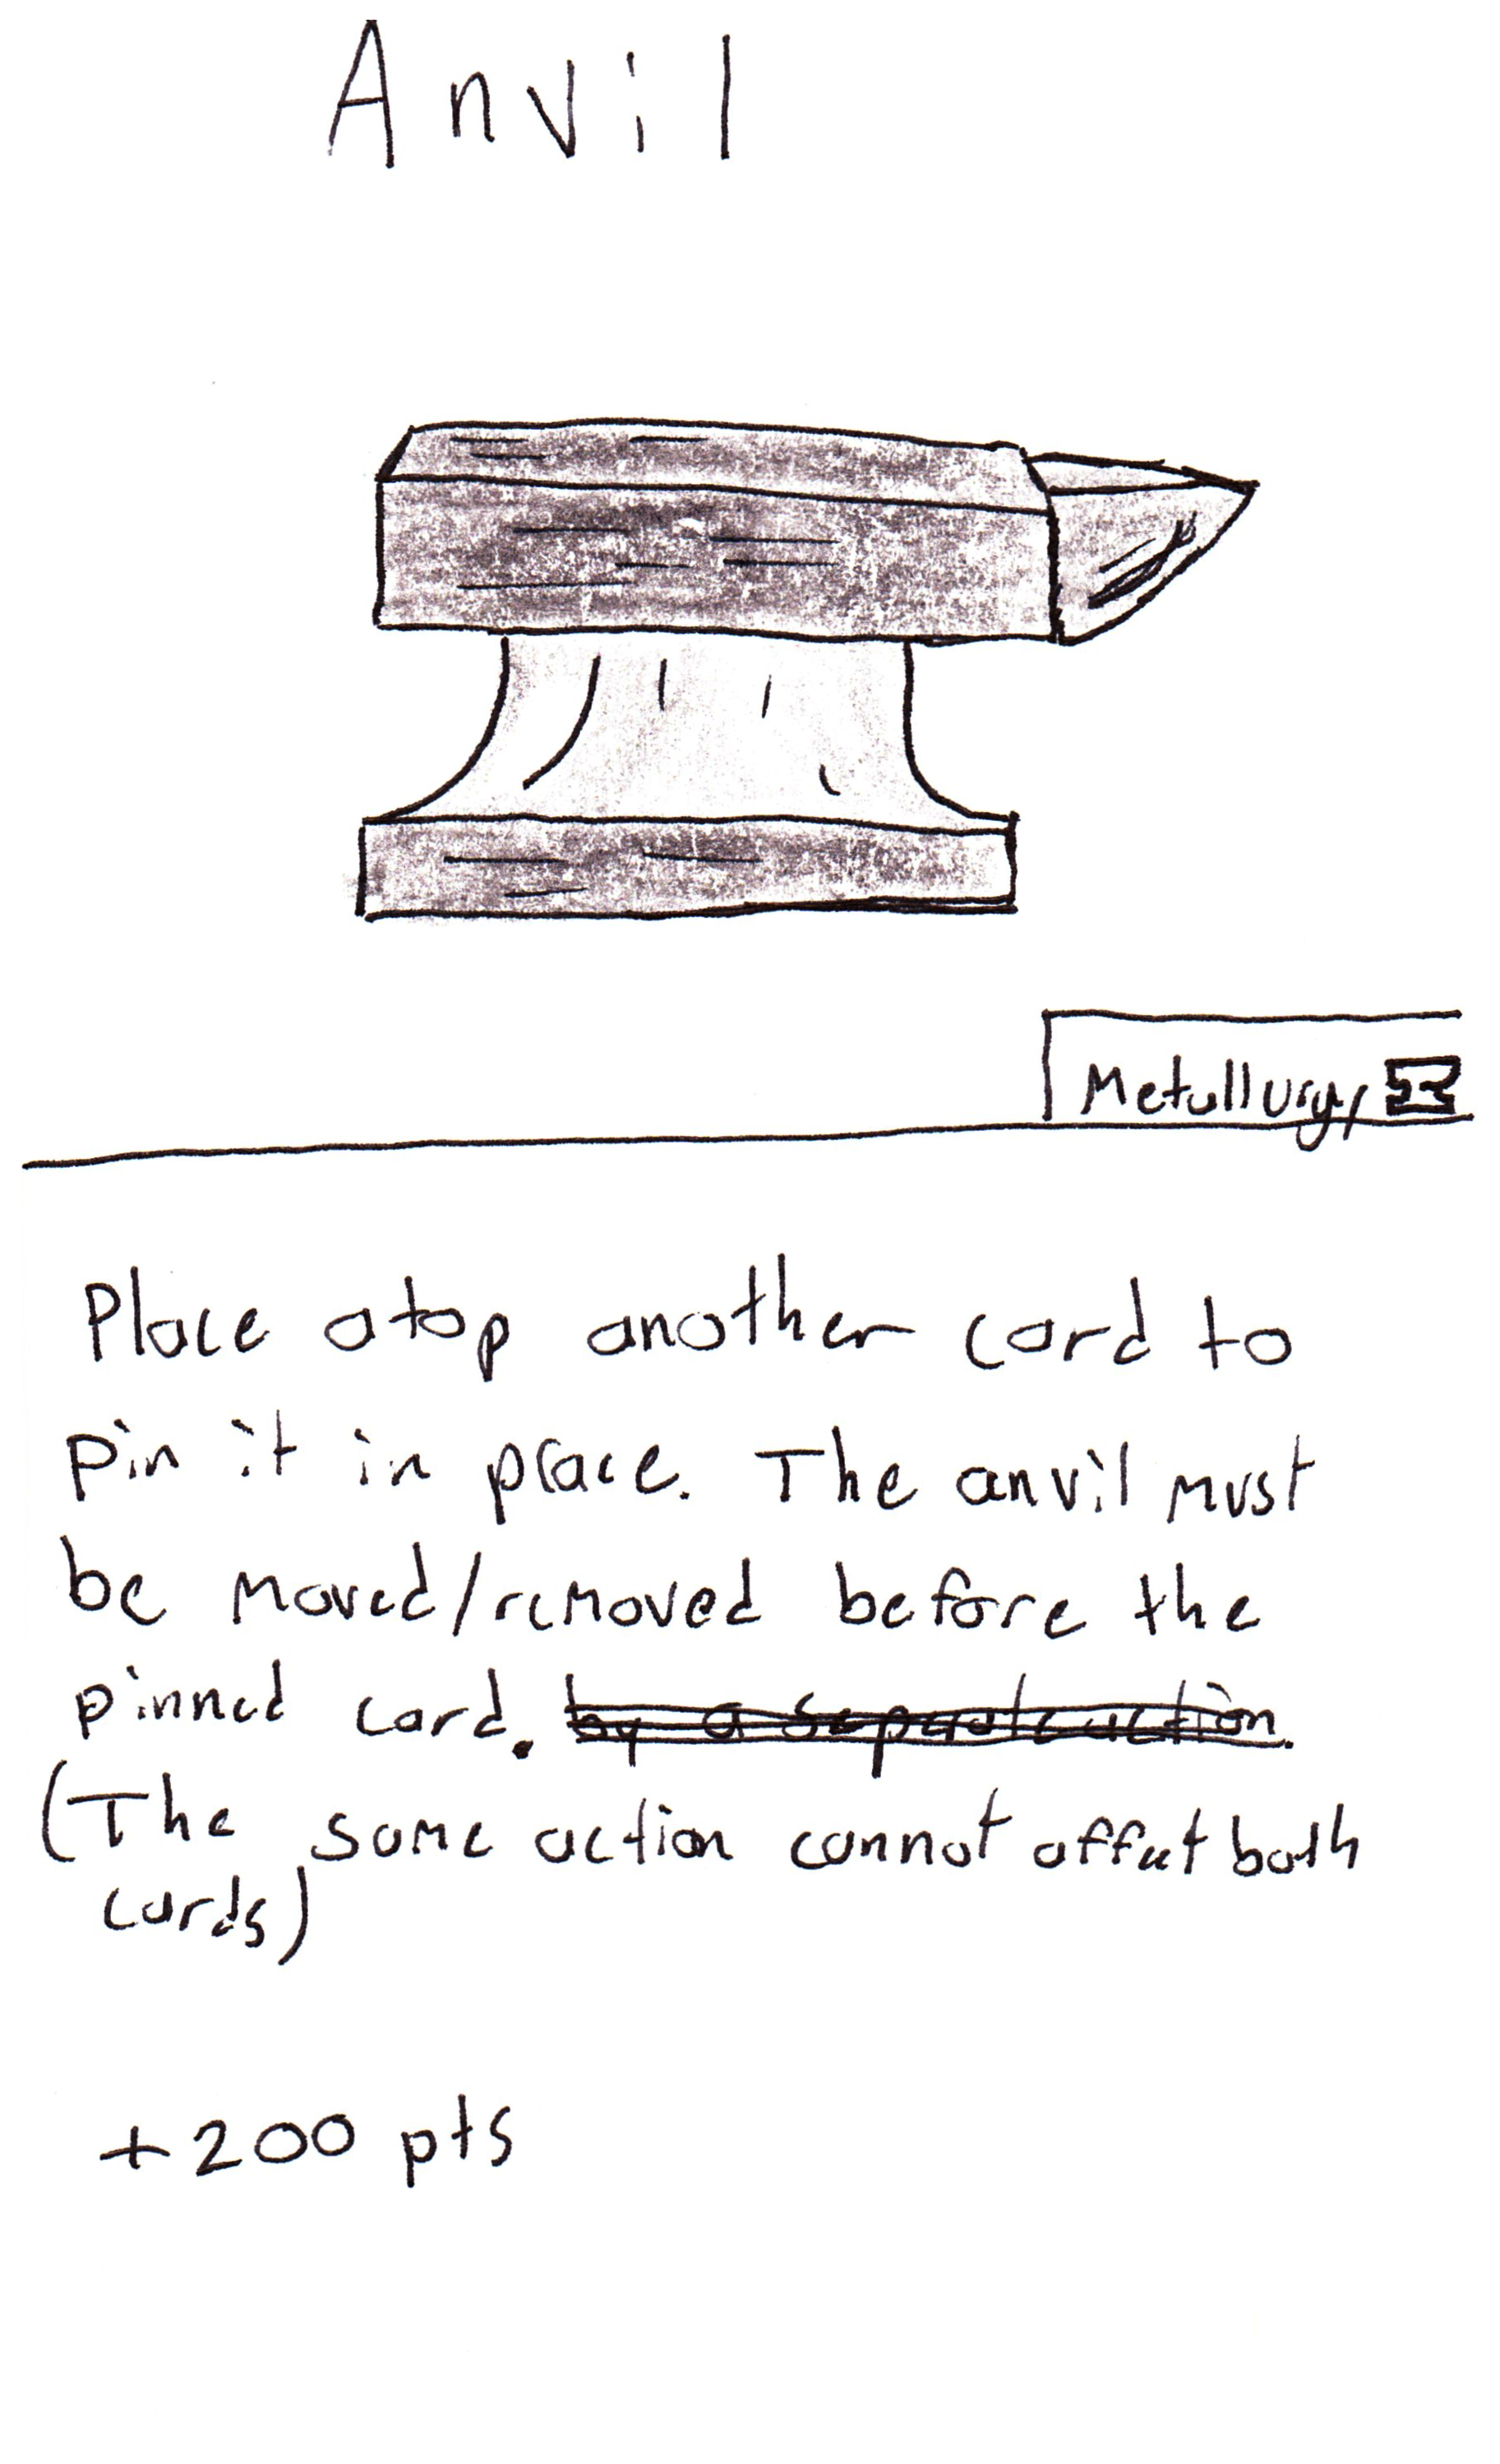 Anvil
Metallurgy
Place atop another card to
pin it in place. The anvil must
be moved/removed before the
pinned card. by a separate action.
(The same action cannot affect both
cards)
+200 pts